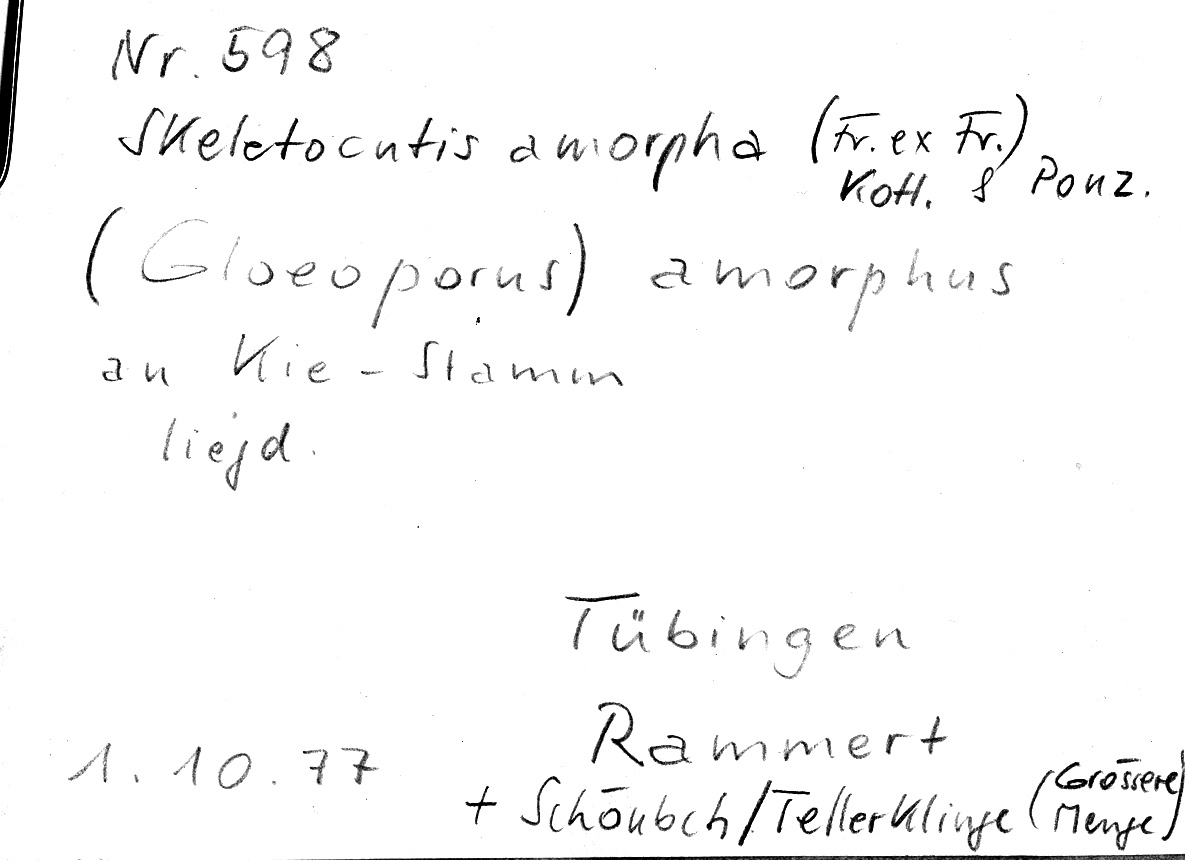 Nr. 598
Skeletocutis amorpha (Fr. ex Fr.)
Kotl. & Pouz.
(Gloeoporus) amorphus
an Kie-Stamm
liegd.
Tübingen
Rammert
1.10.77
+ Schönbch/Tellerklinge (Grössere Menge)